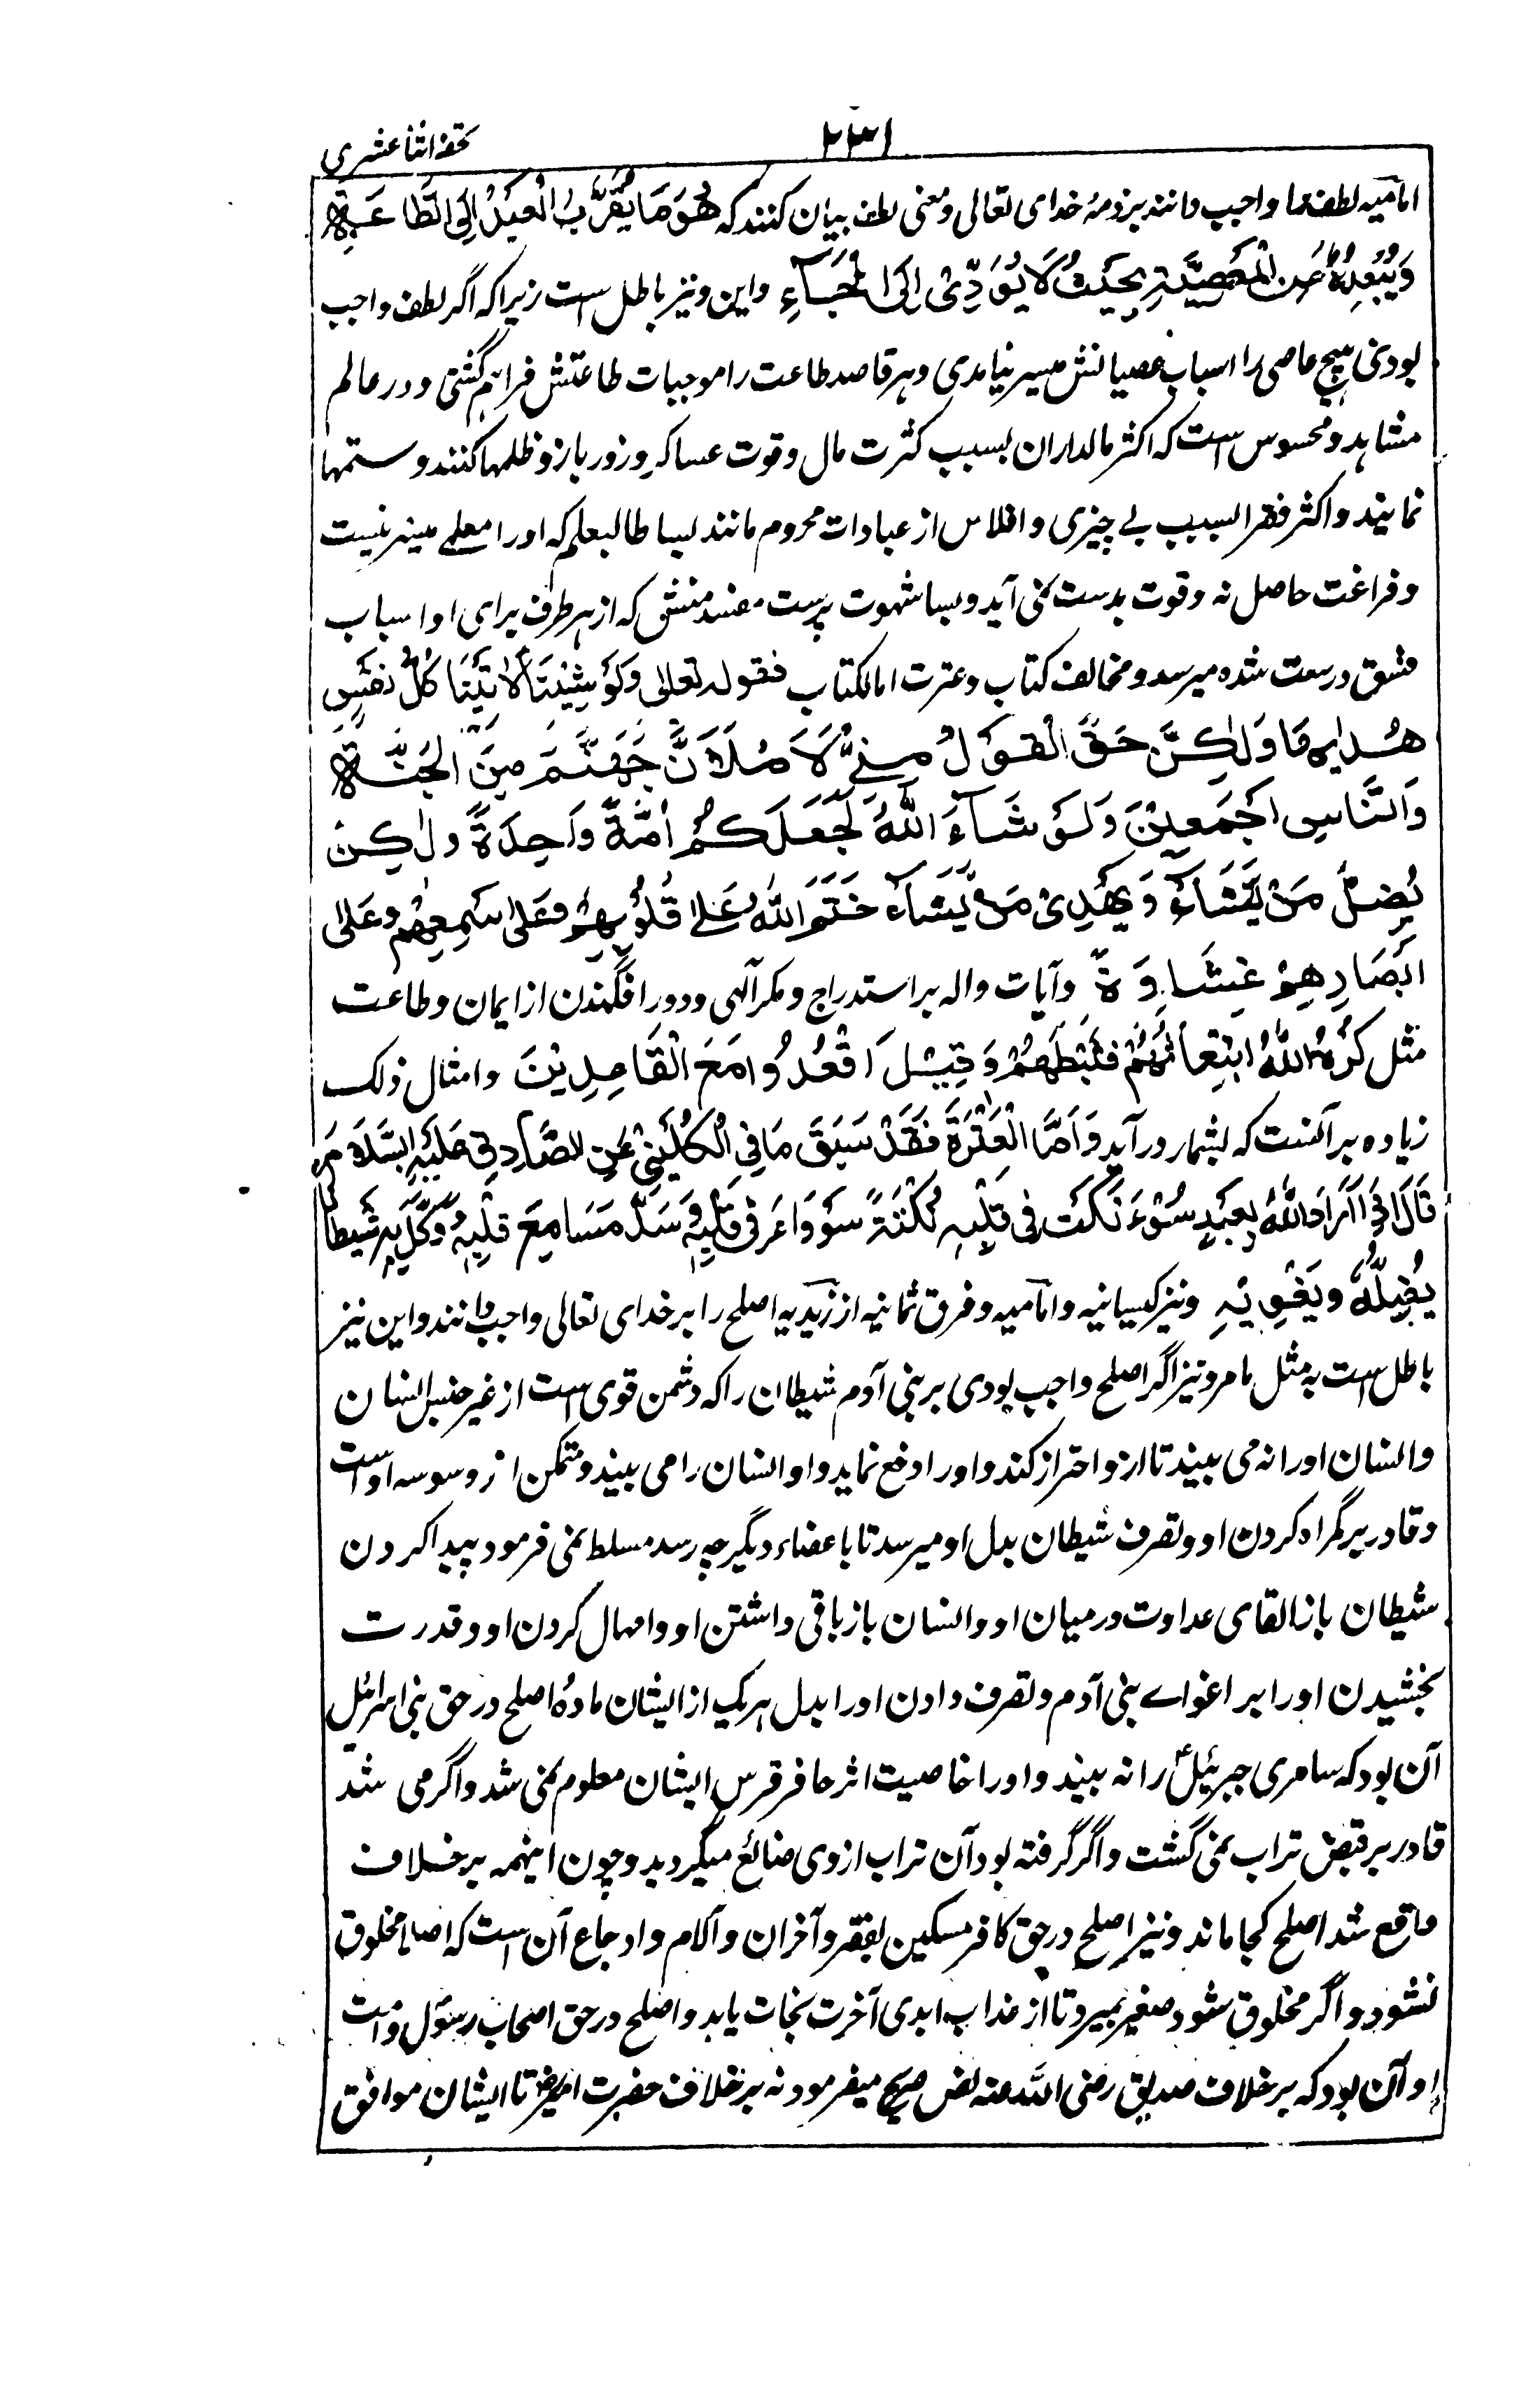 ۲۳۱
تحفه اثنا عشری
امامیه لطف را واجب دانند بر ذمهٔ خدای تعالی و معنی لطف بیان کنند که هُوَ مَا یُقَرِّبُ الْعَبْدَ اِلَی الطَّاعَةِ
وَیُبْعِدُهٗ عَنِ الْمَعْصِیَّةِ بِحَیْثُ لَا یُؤَدِّیْ اِلَی الْجَآءِ واین ونیز باطل است زیرا که اگر لطف واجب
بودی هیچ عاصی را اسباب عصیانش میسر نیامدی وهر قاصد طاعت را موجبات طاعتش فراهم گشتی ودر عالم
مشاهد ومحسوس است که اکثر مالداران بسبب کثرت مال وقوت عساکر وزور بازو ظلمها کنند وستمها
نمایند واکثر فقرا بسبب بے چیزی وافلاس از عبادات محروم مانند بسا طالبعلم که اورا معلمے میسر نیست
وفراغت حاصل نه وقوت بدست نمی آید وبسا شهوت پرست مفسد منش که از هر طرف برای او اسباب
فسق درست شده میرسد ومخالف کتاب وعترت اما الکتاب فقوله تعالی وَلَوْ شِئْنَا لَاٰتَیْنَا كُلَّ نَفْسٍ
هُدٰىهَا وَلٰكِنْ حَقَّ الْقَوْلُ مِنِّیْ لَاَمْلَاَنَّ جَهَنَّمَ مِنَ الْجِنَّةِ
وَالنَّاسِ اَجْمَعِیْنَ وَلَوْ شَآءَ اللّٰهُ لَجَعَلَكُمْ اُمَّةً وَّاحِدَةً وَّلٰكِنْ
یُضِلُّ مَنْ یَّشَآءُ وَیَهْدِیْ مَنْ یَّشَآءُ خَتَمَ اللّٰهُ عَلٰی قُلُوْبِهِمْ وَعَلٰی سَمْعِهِمْ وَعَلٰی
اَبْصَارِهِمْ غِشَاوَةٌ وآیات داله بر استدراج ومکر آلهی ودور افگندن از ایمان وطاعت
مثل كَرِهَ اللّٰهُ انْبِعَاثَهُمْ فَثَبَّطَهُمْ وَقِیْلَ اقْعُدُوْا مَعَ الْقَاعِدِیْنَ وامثال ذلک
زیاده بر آنست که بشمار درآید وَاَمَّا الْعِتْرَةُ فَقَدْ سَبَقَ مَا فِی الْكُلَیْنِیْ عَنِ الصَّادِقِ عَلَیْهِ السَّلَامُ
قَالَ اِذَا اَرَادَ اللّٰهُ بِعَبْدٍ سُوْءً نَكَتَ فِیْ قَلْبِهٖ نُكْتَةً سَوْدَاءَ فِیْ قَلْبِهٖ وَسَدَّ مَسَامِعَ قَلْبِهٖ وَوَكَّلَ بِهٖ شَیْطَانًا
یُضِلُّهٗ وَیَغْوِیْهِ ونیز کیسانیه وامامیه وفرق ثمانیه از زیدیه اصلح را بر خدای تعالی واجب دانند واین نیز
باطل است به مثل مامر ونیز اگر اصلح واجب بودی بر بنی آدم شیطان را که دشمن قوی است از غیر جنس انسان
وانسان اورا نه می بیند تا ازو احتراز کند واورا دفع نماید واو انسان را می بیند ومتمکن از وسوسه او است
وقادر بر گمراه کردن او وتصرف شیطان بدل او میرسد تا باعضاء دیگر چه رسد مسلط نمی فرمود پیدا کردن
شیطان باز القای عداوت درمیان او وانسان باز باقی داشتن او وامهال کردن او وقدرت
بخشیدن اورا بر اغواے بنی آدم وتصرف دادن اورا بدل هریک از ایشان مادهٔ اصلح در حق بنی اسرائیل
آن بود که سامری جبرئیلؑ را نه بیند واورا خاصیت اثر حافر فرس ایشان معلوم نمی شد واگر می شد
قادر بر قبض تراب نمی گشت واگر گرفته بود آن تراب از وی ضائع میگردید وچون اینهمه بر خلاف
واقع شد اصلح کجا ماند ونیز اصلح در حق کافر مسکین بفقر وآخران وآلام واوجاع آن است که اصلا مخلوق
نشود واگر مخلوق شود صغیر بمیرد تا از عذاب ابدی آخرت نجات یابد واصلح در حق اصحاب رسول وامت
او آن بود که بر خلافت صدیق رضی الله عنه نص صریح میفرمود نه بر خلافت حضرت امیرؓ تا ایشان موافق